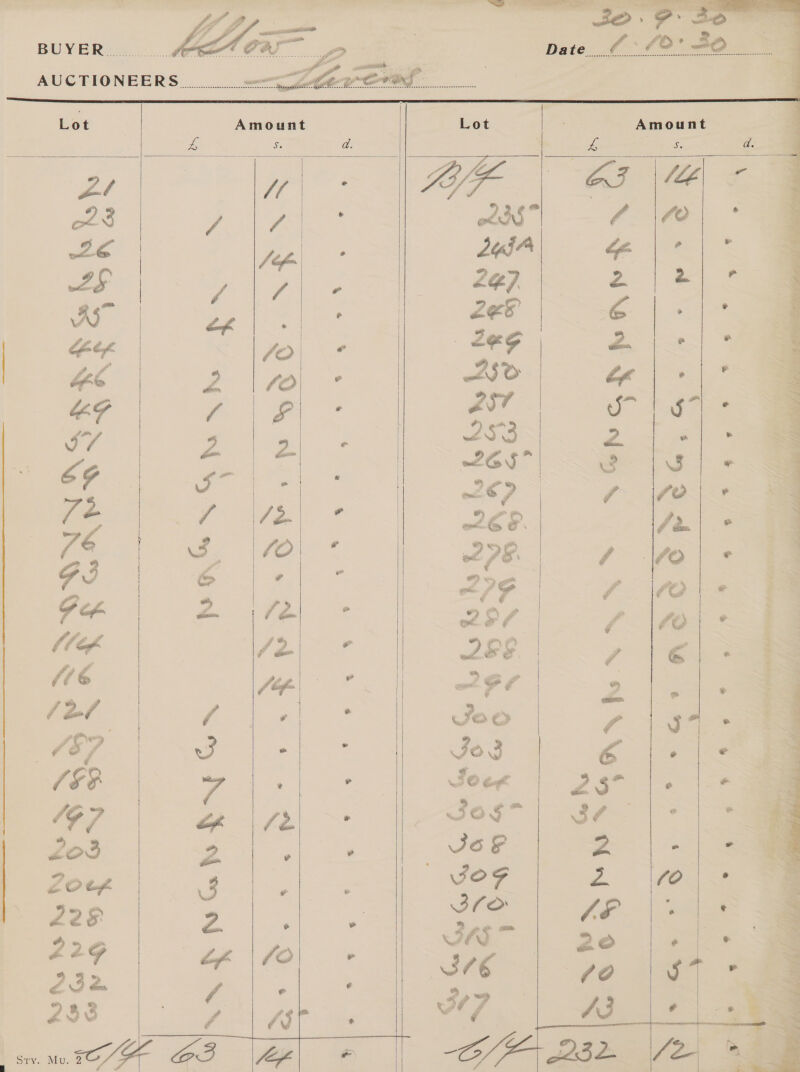 30.9.30
BUYER Allow Date 1.10.30
AUCTIONEERS Stevens
Lot Amount
£ s. d.
21 11 -
23 1 1 -
26 14 -
28 1 1 -
35 4 - -
44 10 -
46 2 10 -
49 1 8 -
51 2 2 -
69 5 - -
72 1 12 -
76 3 10 -
93 6 - -
94 2 12 -
114 12 -
116 14 -
121 1 - -
187 3 - -
188 7 - -
197 4 12 -
203 2 - -
204 3 - -
228 2 - -
229 4 10 -
232 1 - -
233 1 15 -
Sty. Mu. 2 C/F 63 14 -
Lot Amount
£ s. d.
B/F 63 14 -
235 1 10 -
243A 4 - -
247 2 2 -
248 6 - -
249 2 - -
250 4 - -
251 5 5 -
253 2 - -
265 3 3 -
267 1 10 -
268 12 -
278 1 10 -
279 1 10 -
281 1 10 -
288 1 6 -
291 2 - -
300 1 5 -
303 6 - -
304 25 - -
305 31 - -
308 2 - -
309 2 10 -
310 18 - -
315 20 - -
316 10 5 -
317 13 - -
C/F 232 12 -